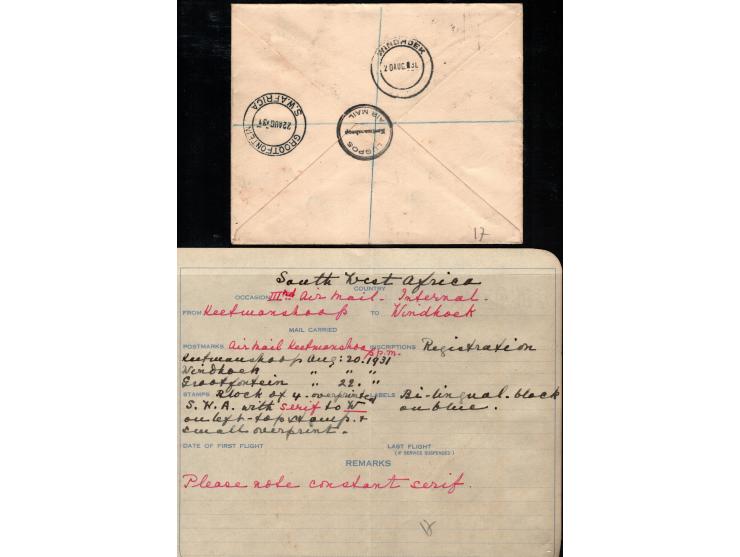 WINDHOEK
20 AUG. 31
GROOTFONTEIN
22 AUG 31
S.W. AFRICA
LUGPOS
Keetmanshoop
AIR MAIL
17
South West Africa
COUNTRY
OCCASION IIIrd Air Mail - Internal.
FROM Keetmanshoop TO Windhoek
MAIL CARRIED
POSTMARKS Air Mail Keetmanshoop p.m. INSCRIPTIONS Registration
Keetmanshoop Aug: 20. 1931
Windhoek " " "
Grootfontein " 22. "
STAMPS Block of 4. overprinted LABELS Bi-lingual. black
S.W.A. with serif to W on blue.
on left-top stamp. &
small overprint.
DATE OF FIRST FLIGHT LAST FLIGHT
(IF SERVICE SUSPENDED)
REMARKS
Please note constant serif.